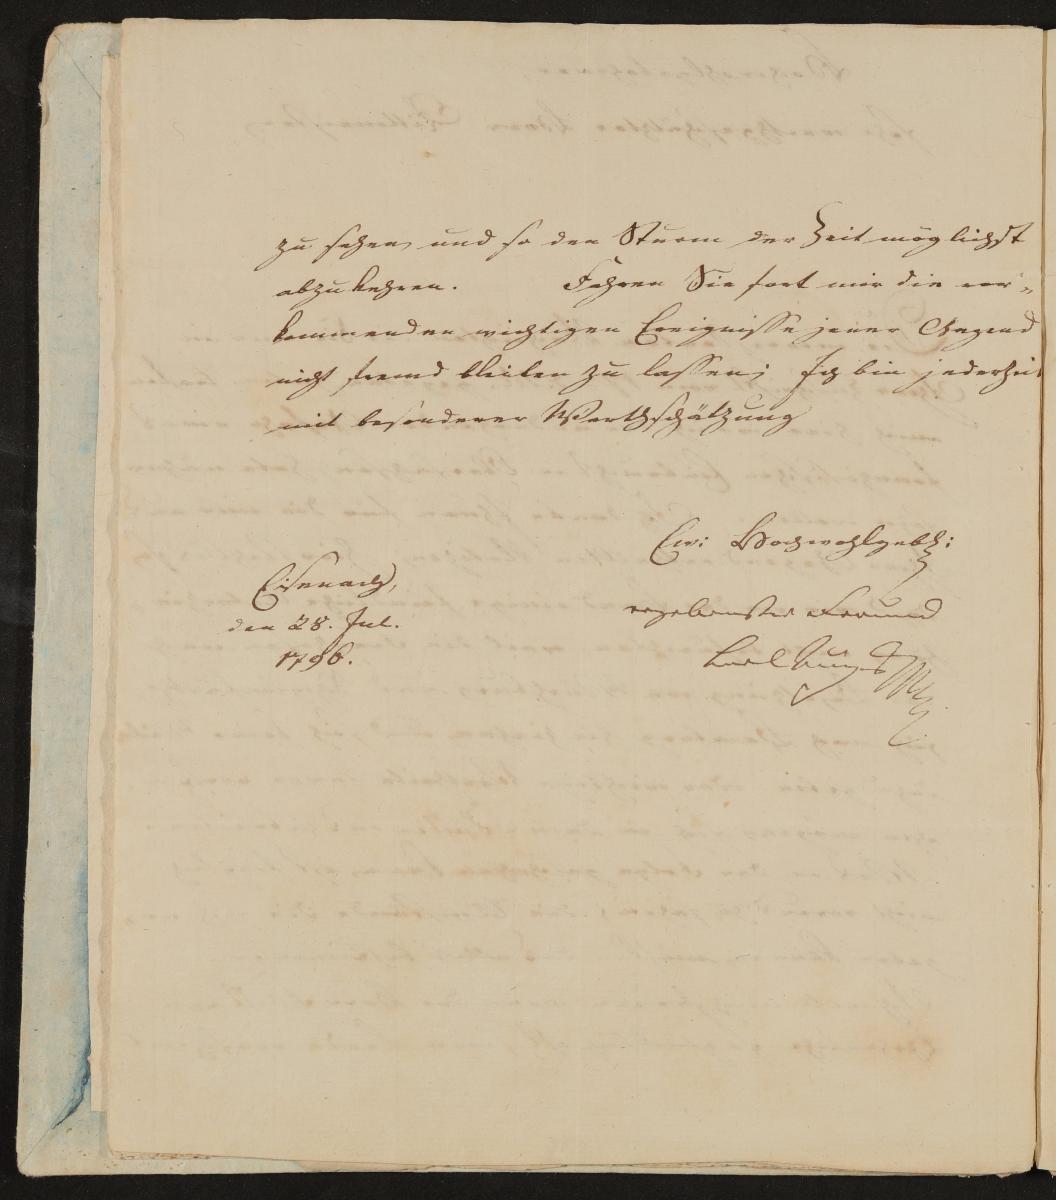 zu sehen, und so den Sturm der Zeit möglichst
abzukehren. Fahren Sie fort mir die vor-
kommenden wichtigen Ereignisse jener Gegend
nicht fremd bleiben zu lassen; Ich bin jederzeit
mit besonderer Werthschätzung
Ew: Hochwohlgeb:
Eisenach,
den 28. Jul.
1796.
ergebenster Freund
Carl August